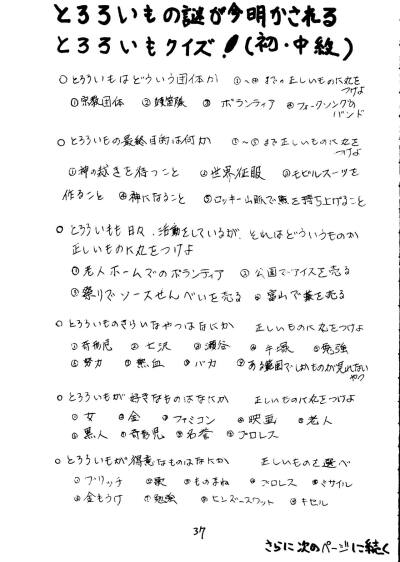 とろろいもの謎が今明かされる
とろろいもクイズ!(初・中級)
○とろろいもはどういう団体か ①〜④までの正しいものに丸をつけよ
①宗教団体 ② ③ボランティア ④フォークソングのバンド
○とろろいもの最終目的は何か ①〜⑤まで正しいものに丸をつけよ
①神の裁きを待つこと ②世界征服 ③モビルスーツを
作ること ④神になること ⑤ロッキー山脈で熊を持ち上げること
○とろろいもも日々、活動をしているが、それはどういうものか
正しいものに丸をつけよ
①老人ホームでのボランティア ②公園でアイスを売る
③祭りでソースせんべいを売る ④富山で薬を売る
○とろろいものきらいなやつはなにか 正しいものに丸をつけよ
①奇形児 ②七沢 ③瀬谷 ④平塚 ⑤勉強
⑥努力 ⑦熱血 ⑧バカ ⑨ある範囲でしかものが見れないやつ
○とろろいもが好きなものはなにか 正しいものに丸をつけよ
①女 ②金 ③ファミコン ④映画 ⑤老人
⑥黒人 ⑦奇形児 ⑧名誉 ⑨プロレス
○とろろいもが得意なものはなにか 正しいものを選べ
①ブリッヂ ②歌 ③ものまね ④プロレス ⑤ミサイル
⑥金もうけ ⑦勉強 ⑧ヒンズースワット ⑨キセル
37
さらに次のページに続く